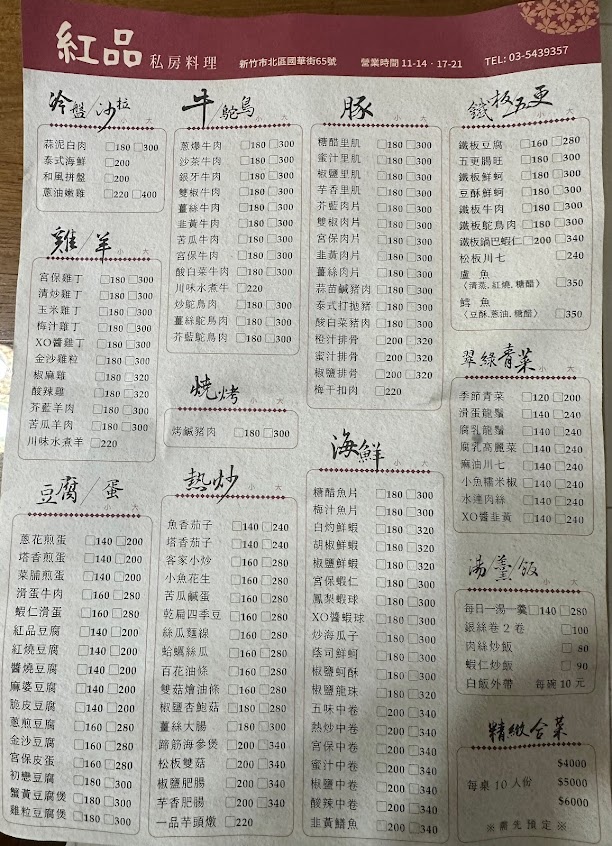 紅品 私房料理 新竹市北區國華街65號 營業時間 11-14．17-21 TEL: 03-5439357
冷盤/沙拉
小 大
蒜泥白肉 □180 □300
泰式海鮮 □200
和風拼盤 □200
蔥油嫩雞 □220 □400
雞/羊
小 大
宮保雞丁 □180 □300
清炒雞丁 □180 □300
玉米雞丁 □180 □300
梅汁雞丁 □180 □300
XO醬雞丁 □180 □300
金沙雞粒 □180 □300
椒麻雞 □180 □320
酸辣雞 □180 □320
芥藍羊肉 □180 □300
苦瓜羊肉 □180 □300
川味水煮羊 □220
豆腐/蛋
小 大
蔥花煎蛋 □140 □200
塔香煎蛋 □140 □200
菜脯煎蛋 □140 □200
滑蛋牛肉 □160 □280
蝦仁滑蛋 □160 □280
紅品豆腐 □140 □200
紅燒豆腐 □140 □200
醬燒豆腐 □140 □200
麻婆豆腐 □140 □200
脆皮豆腐 □140 □200
蔥煎豆腐 □160 □280
金沙豆腐 □160 □280
宮保皮蛋 □160 □280
初戀豆腐 □180 □300
蟹黃豆腐煲 □180 □300
雞粒豆腐煲 □180 □300
牛/鴕鳥
小 大
蔥爆牛肉 □180 □300
沙茶牛肉 □180 □300
銀牙牛肉 □180 □300
雙椒牛肉 □180 □300
薑絲牛肉 □180 □300
韭黃牛肉 □180 □300
苦瓜牛肉 □180 □300
宮保牛肉 □180 □300
酸白菜牛肉 □180 □300
川味水煮牛 □220
炒鴕鳥肉 □180 □300
薑絲鴕鳥肉 □180 □300
芥藍鴕鳥肉 □180 □300
燒烤
小 大
烤鹹豬肉 □180 □300
熱炒
小 大
魚香茄子 □140 □240
塔香茄子 □140 □240
客家小炒 □160 □280
小魚花生 □160 □280
苦瓜鹹蛋 □160 □280
乾扁四季豆 □160 □280
絲瓜麵線 □160 □280
蛤蠣絲瓜 □160 □280
百花油條 □160 □280
雙菇燴油條 □160 □280
椒鹽杏鮑菇 □180 □280
薑絲大腸 □180 □300
蹄筋海參煲 □200 □340
松板雙菇 □200 □340
椒鹽肥腸 □200 □340
芋香肥腸 □200 □340
一品芋頭燉 □220
豚
小 大
糖醋里肌 □180 □300
蜜汁里肌 □180 □300
椒鹽里肌 □180 □300
芋香里肌 □180 □300
芥藍肉片 □180 □300
雙椒肉片 □180 □300
宮保肉片 □180 □300
韭黃肉片 □180 □300
薑絲肉片 □180 □300
蒜苗鹹豬肉 □180 □300
泰式打拋豬 □180 □300
酸白菜豬肉 □180 □300
橙汁排骨 □200 □320
蜜汁排骨 □200 □320
椒鹽排骨 □200 □320
梅干扣肉 □220
海鮮
小 大
糖醋魚片 □180 □300
梅汁魚片 □180 □300
白灼鮮蝦 □180 □320
胡椒鮮蝦 □180 □320
椒鹽鮮蝦 □180 □320
宮保蝦仁 □180 □300
鳳梨蝦球 □180 □300
XO醬蝦球 □180 □300
炒海瓜子 □180 □300
蔭司鮮蚵 □180 □300
椒鹽蚵酥 □180 □300
椒鹽龍珠 □180 □320
五味中卷 □200 □340
熱炒中卷 □200 □340
宮保中卷 □200 □340
蜜汁中卷 □200 □340
椒鹽中卷 □200 □340
酸辣中卷 □200 □340
韭黃鱔魚 □200 □340
鐵板/五更
小 大
鐵板豆腐 □160 □280
五更腸旺 □180 □300
鐵板鮮蚵 □180 □300
豆酥鮮蚵 □180 □300
鐵板牛肉 □180 □300
鐵板鴕鳥肉 □180 □300
鐵板鍋巴蝦仁 □200 □340
松板川七 □240
盧魚
（清蒸,紅燒,糖醋） □350
鱈魚
（豆酥,蔥油,糖醋） □350
翠綠青菜
小 大
季節青菜 □120 □200
滑蛋龍鬚 □140 □240
腐乳龍鬚 □140 □240
腐乳高麗菜 □140 □240
麻油川七 □140 □240
小魚糯米椒 □140 □240
水蓮肉絲 □140 □240
XO醬韭黃 □140 □240
湯/羹/飯
小 大
每日一湯一羹 □140 □280
銀絲卷2卷 □100
肉絲炒飯 □80
蝦仁炒飯 □90
白飯外帶 每碗10元
精緻合菜
$4000
每桌10人份 $5000
$6000
※需先預定※